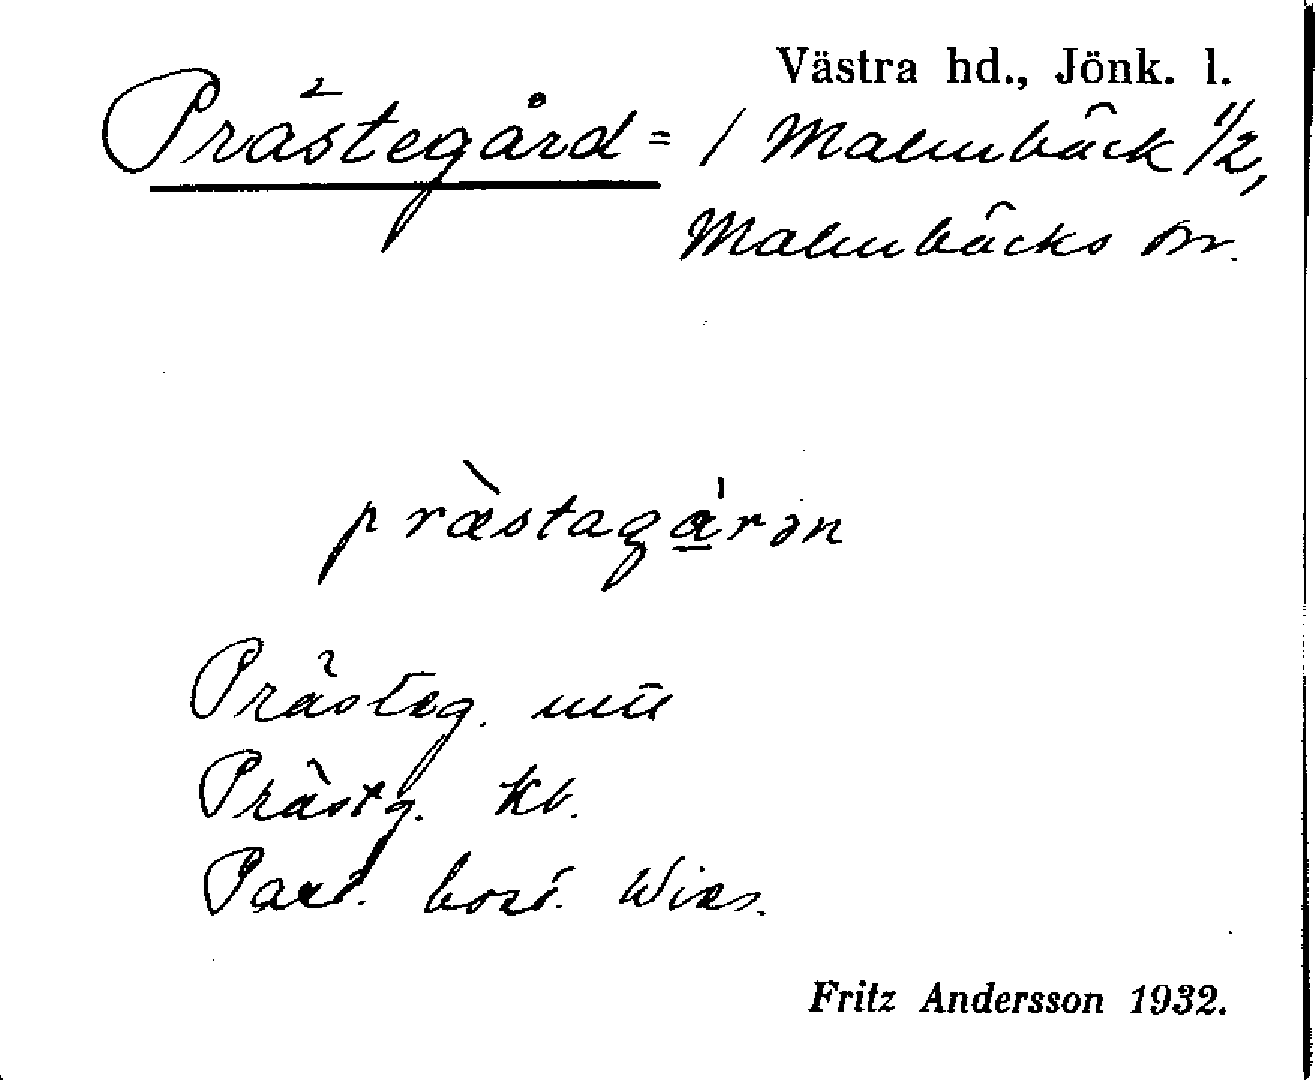 Västra hd., Jönk. l.
Prästegård = / Malmbäck 1/2,
Malmbäcks sn.
præ̀stagá̱rən
Prästeg.
Prästg. Kb.
Past. bost. Wies.
Fritz Andersson 1932.